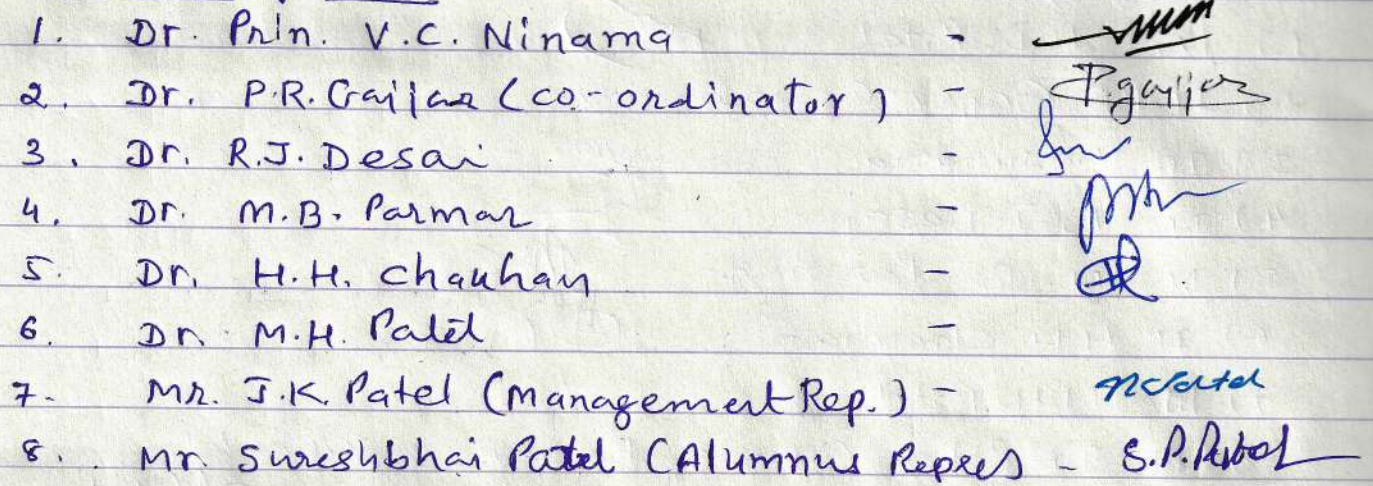 1. Dr. Prin. V.C. Ninama -
2. Dr. P.R. Gajjar (co-ordinator) - P.gajjar
3. Dr. R.J. Desai -
4. Dr. M.B. Parmar -
5. Dr. H.H. Chauhan -
6. Dr. M.H. Patel -
7. Mr. J.K. Patel (Management Rep.) -
8. Mr. Sureshbhai Patel (Alumnus Repres) - S.P.Patel